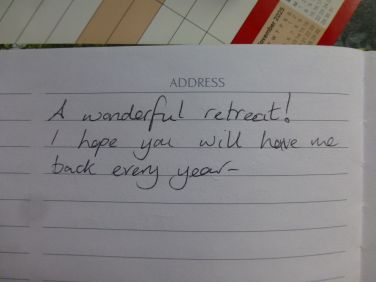 November 2025
ADDRESS
A wonderful retreat!
I hope you will have me
back every year-